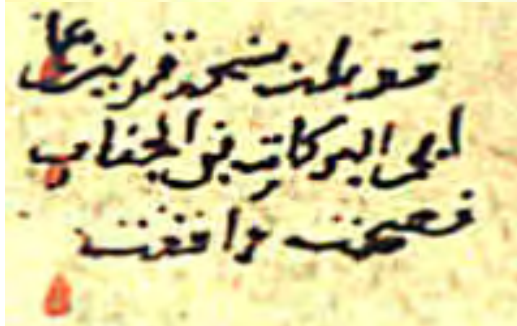 قوبلت بنسخة قريت على
ابي البركات بن الجباب
فصحت ووافقت